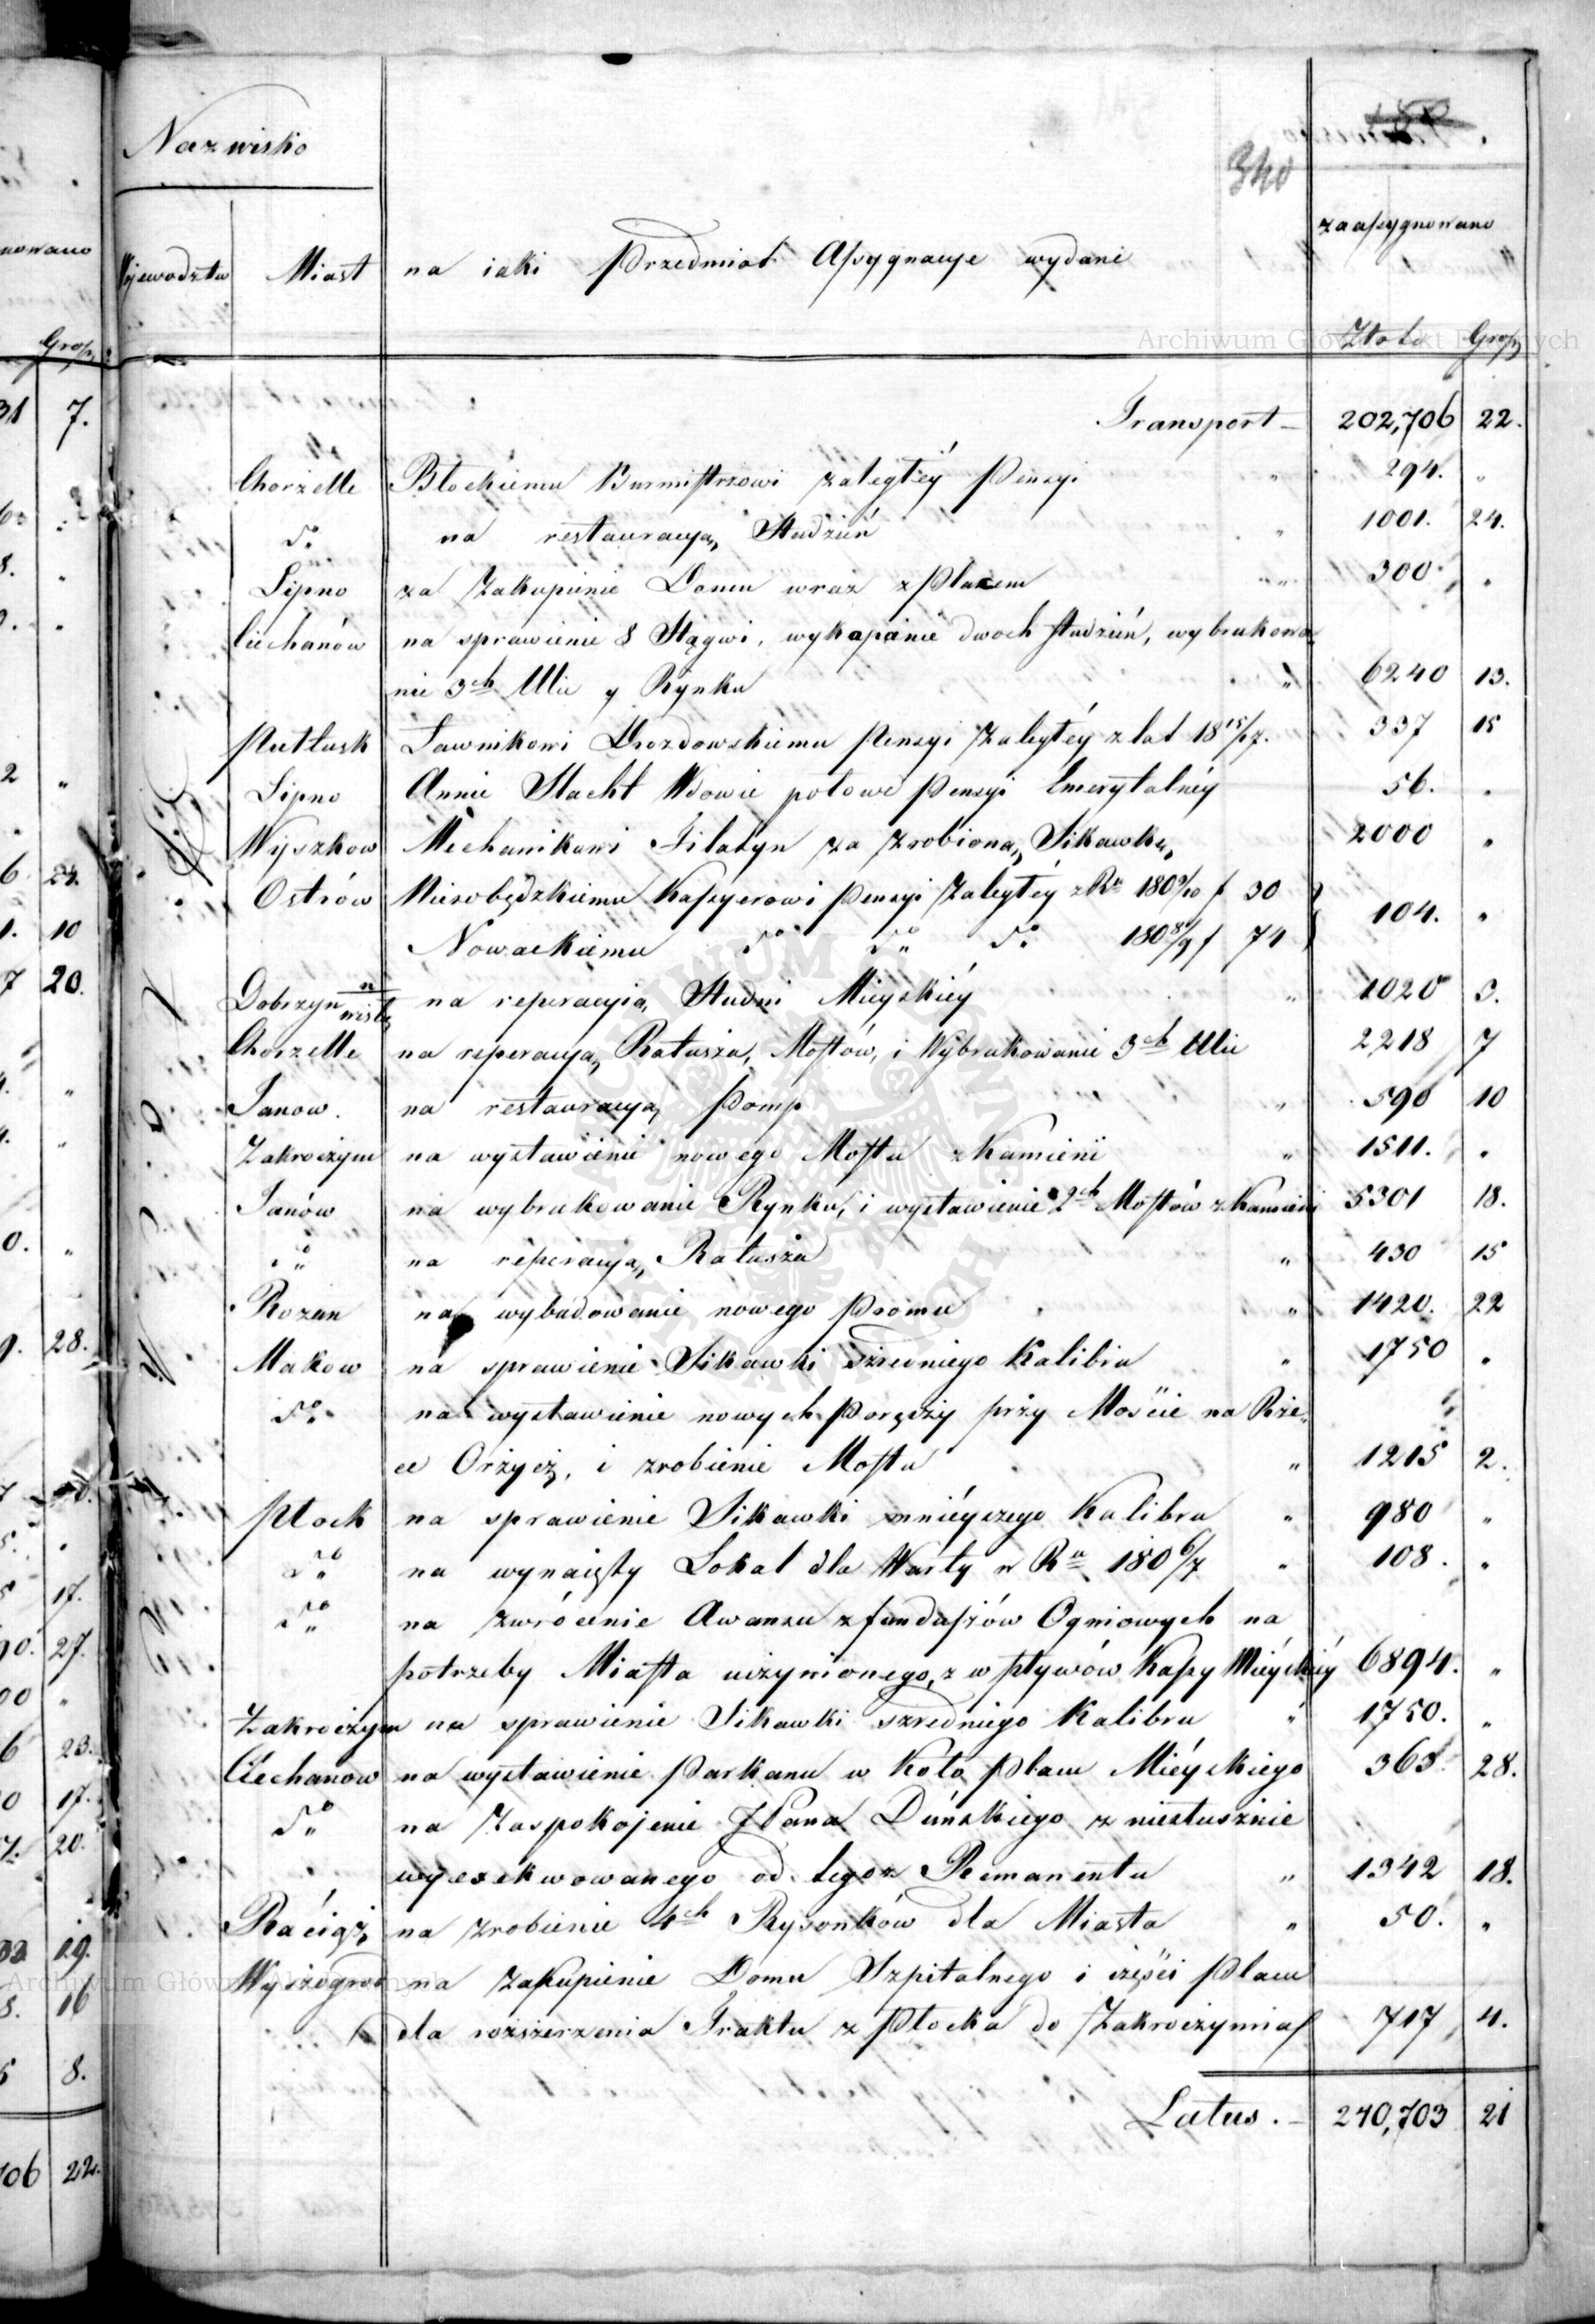 Nazwisko
340
Wojewodztw Miast na iaki Przedmiot Assygnacye wydane zaassygnowano
Złote Grosz
Transport 202,706 22.
Chorzelle Błockiemu Burmistrzowi zaległéy Pensyi " 294. "
do na restauracyą Studzień " 1001. 24.
Lipno za Zakupienie Domu wraz z Placem " 300 "
Ciechanów na sprawienie 8 Stągwi, wykopanie dwoch studzien, wybrukowa
nie 3ch Ulic y Rynku " 6240 13.
Pułtusk Ławnikowi Drozdowskiemu Pensyi Zaległéy z lat 18 15/17. 337 15
Lipno Annie Stacht Wdowie połowe Pensyi Emerytalnéy 56. "
Wyszkow Mechanikowi Filatyn za zrobioną Sikawkę 2000 "
Ostrów Kassyerowi Pensyi Zaległéy z Ru 180 9/10 f 30
Nowackiemu do do do 180 8/9 f 74 104. "
Dobrzyn n Wisłą na reperacyią Studni Mieyskiéy " 1020 3.
Chorzelle na reperacyą Ratusza, Mostów, i Wybrukowanie 3ch Ulic 2218 7
Janow. na restauracyą Pomp " 590 10
Zakroczym na wystawienie nowego Mostu z Kamieni " 1511. "
Janów na wybrukowanie Rynku, i wystawienie 2ch Mostów z Kamieni 5301 18.
do na reperacyą Ratusza " 430 15
Rozan na wybudowanie nowego Promu " 1420. 22
Makow na sprawienie Sikawki szredniego Kalibru " 1750 "
do na wystawienie nowych Poręczy przy Moście na Rze
ce Orzycz, i zrobienie Mostu " 1215 2.
Płock na sprawienie Sikawki mnieyszego Kalibru " 980 "
do na wynaięty Lokal dla Warty w Ru 180 6/7 " 108. "
do na zwrócenie Awansu z funduszów Ogniowych na
potrzeby Miasta uczynionego, z wpływów Kassy Mieyskiéy 6894. "
Zakroczym na sprawienie Sikawki szredniego Kalibru " 1750. "
Ciechanow na wystawienie Parkanu w Koło Placu Mieyskiego 363. 28.
do na Zaspokojenie JPana Duńskiego z niesłusznie
wyexekwowanego od tegoż Remanentu " 1342 18.
Raciąż na zrobienie 4ch Rysonków dla Miasta " 50. "
Wyszogrod na Zakupienie Domu Szpitalnego i części Placu
dla rozszerzenia Traktu z Płocka do Zakroczymia 717 4.
Latus. 240,703 21
Archiwum Główne Akt Dawnych